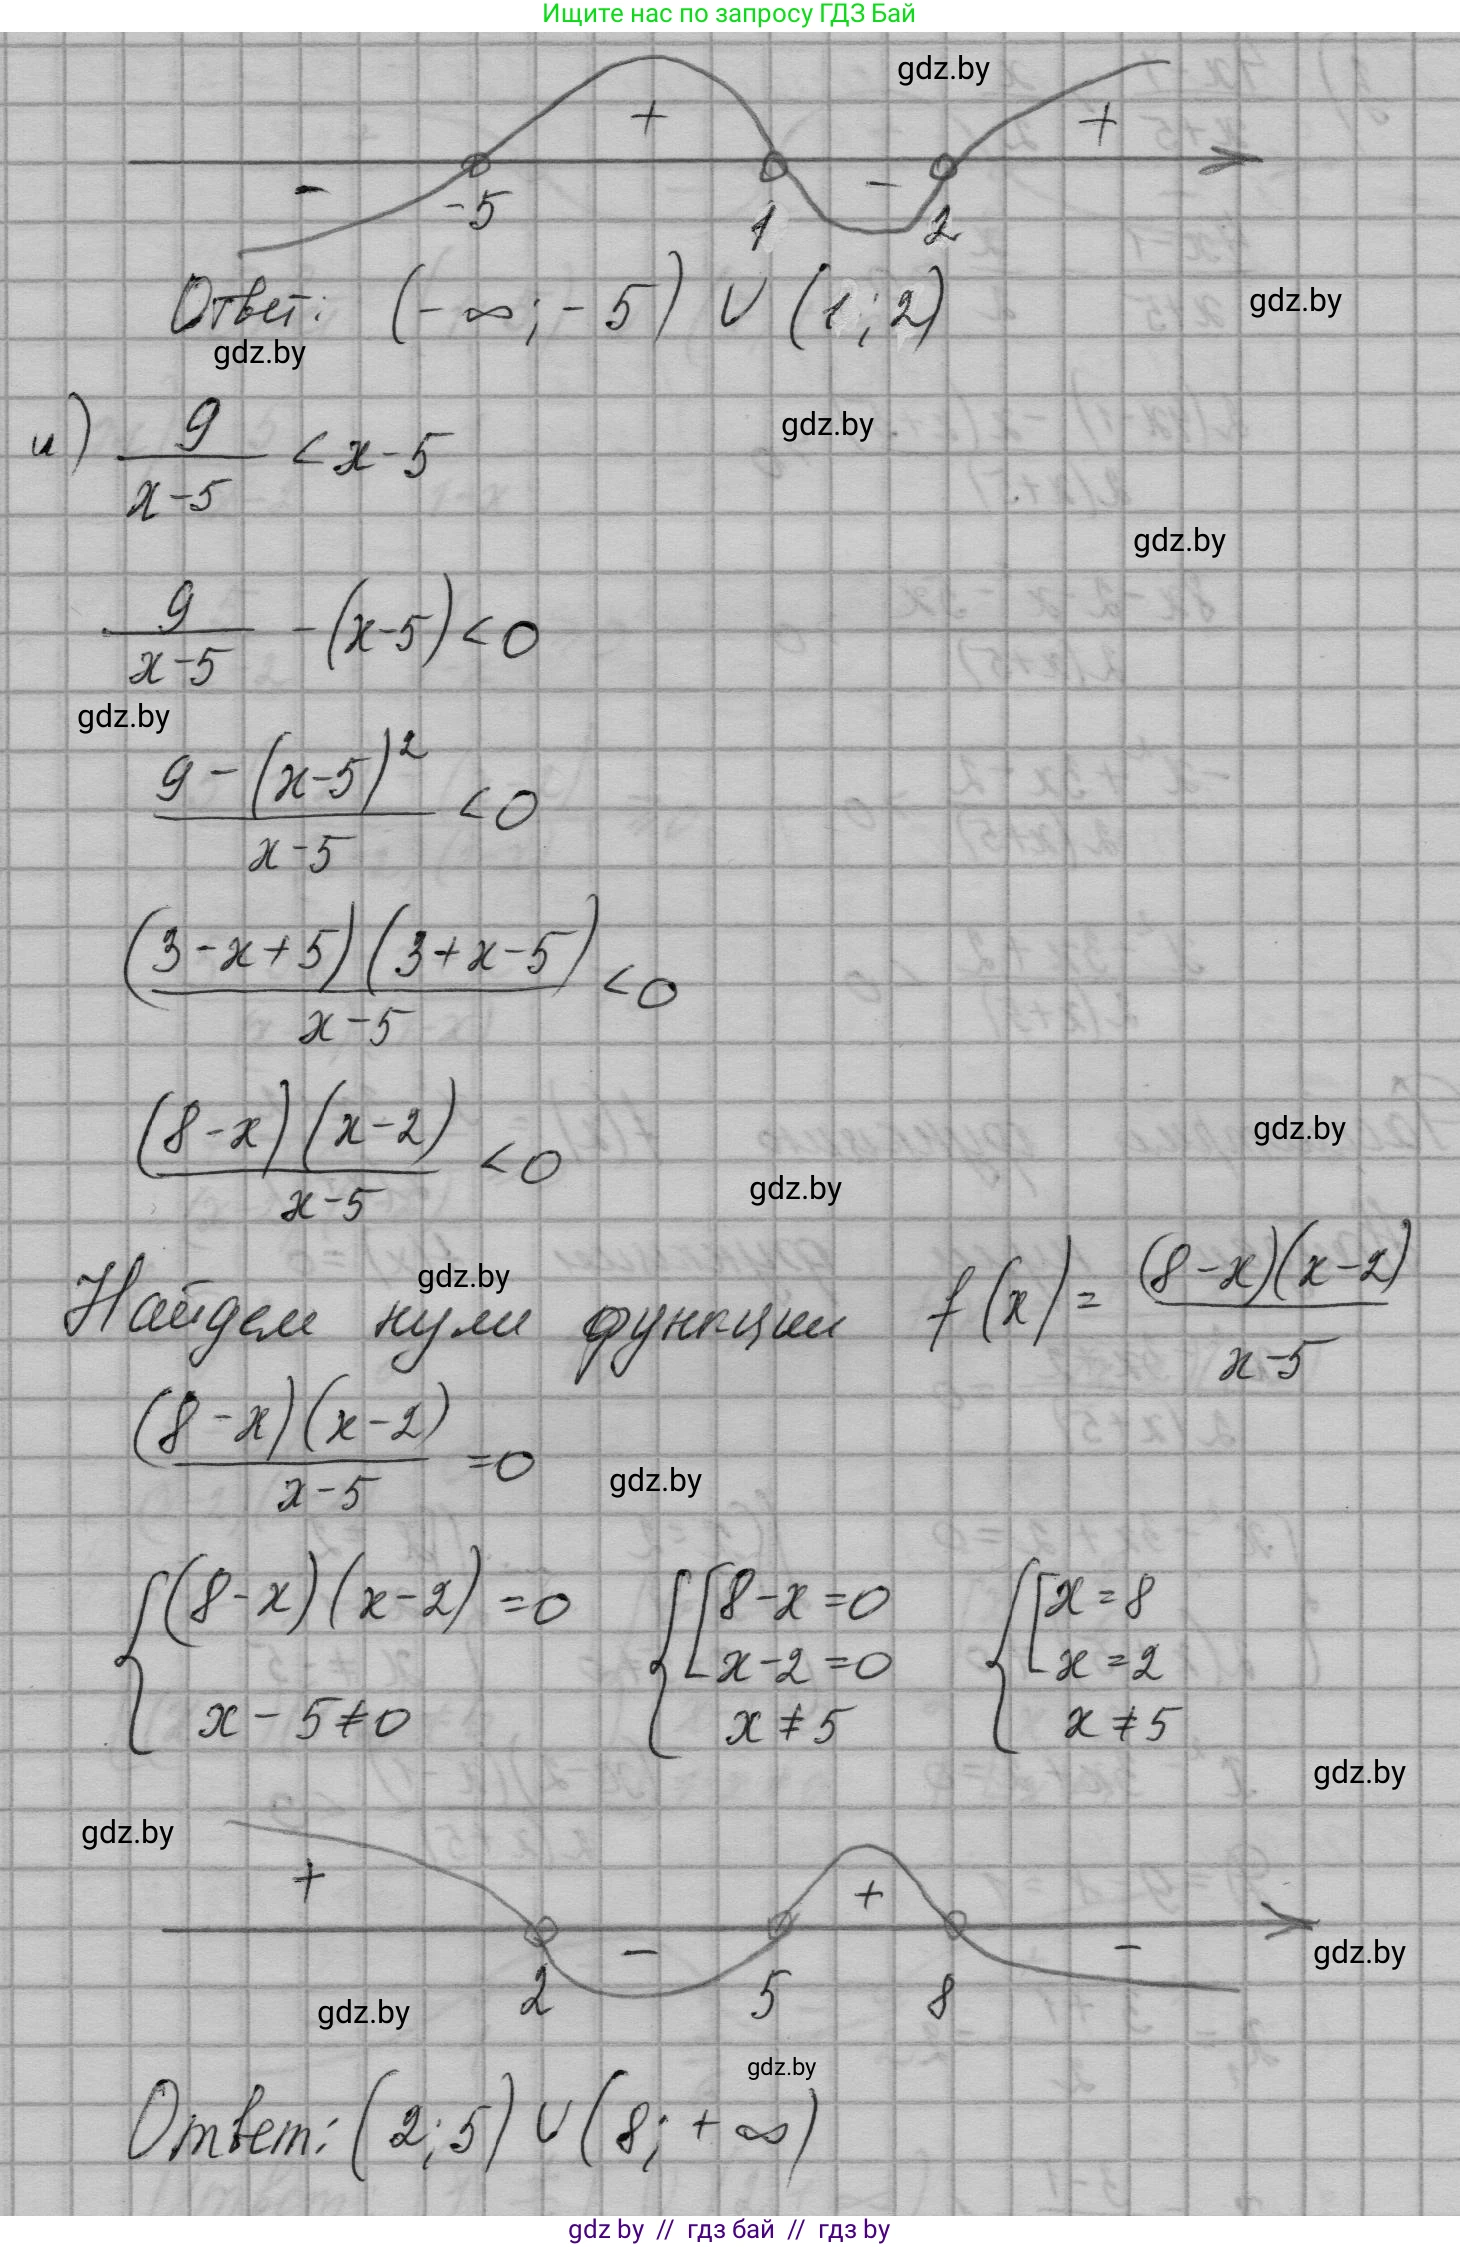 Ищите нас по запросу ГДЗ Бай
gdz.by
- + - +
-5 1 2
Ответ: (-∞; -5) ∪ (1; 2)
gdz.by
gdz.by
и) 9/(x-5) < x-5
gdz.by
gdz.by
9/(x-5) - (x-5) < 0
gdz.by
(9-(x-5)²)/(x-5) < 0
((3-x+5)(3+x-5))/(x-5) < 0
((8-x)(x-2))/(x-5) < 0
gdz.by
gdz.by
gdz.by
Найдем нули функции f(x) = ((8-x)(x-2))/(x-5)
((8-x)(x-2))/(x-5) = 0
gdz.by
{(8-x)(x-2)=0 {[8-x=0 {[x=8
x-2=0 x=2
x-5≠0 x≠5 x≠5
gdz.by
gdz.by
+ - + -
gdz.by
2 5 8
gdz.by
gdz.by
Ответ: (2; 5) ∪ (8; +∞)
gdz by // гдз бай // гдз by